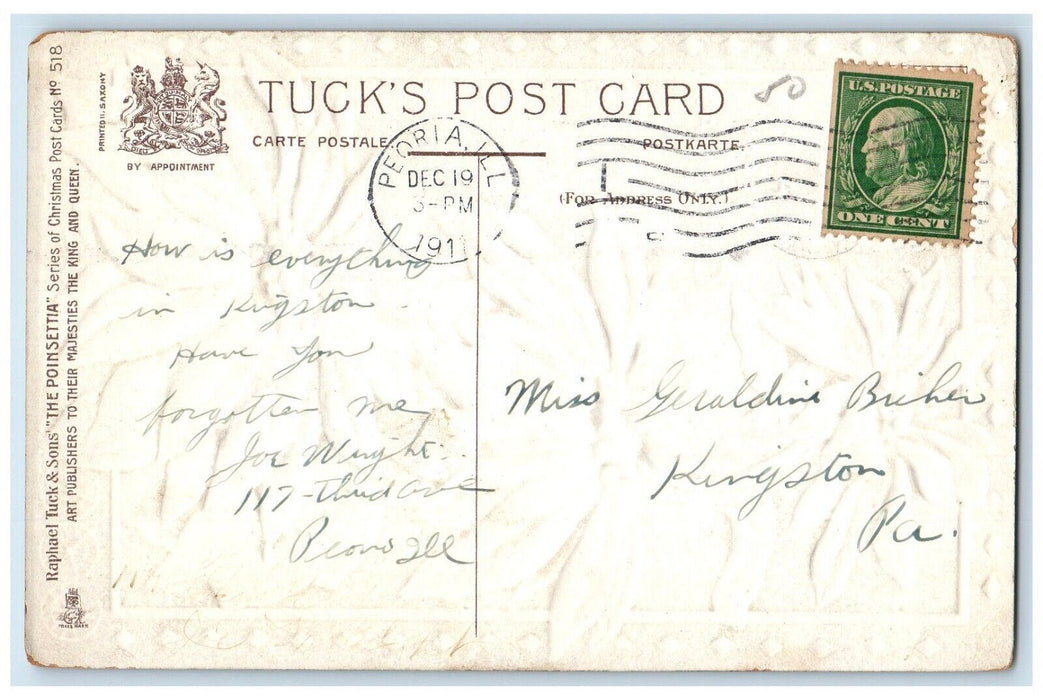 Raphael Tuck & Sons' "THE POINSETTIA" Series of Christmas Post Cards Nº 518
ART PUBLISHERS TO THEIR MAJESTIES THE KING AND QUEEN.
PRINTED IN SAXONY
BY APPOINTMENT
TUCK'S POST CARD
CARTE POSTALE.
POSTKARTE.
(FOR ADDRESS ONLY.)
50
PEORIA, ILL
DEC 19
3-PM
1911
U.S. POSTAGE
ONE CENT
How is everything
in Kingston
Have You
forgotten me
Joe Wright
117-Third ave
Peoria Ill
Miss Geraldine
Kingston
Pa.